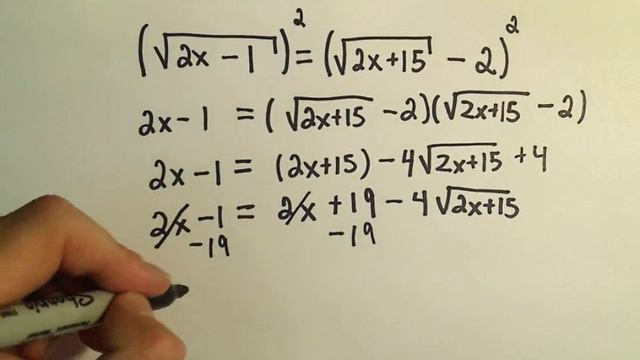 (√(2x - 1))² = (√(2x+15) - 2)²
2x - 1 = (√(2x+15) - 2)(√(2x+15) - 2)
2x - 1 = (2x+15) - 4√(2x+15) + 4
2x - 1 = 2x + 19 - 4√(2x+15)
-19 -19
Sharpie